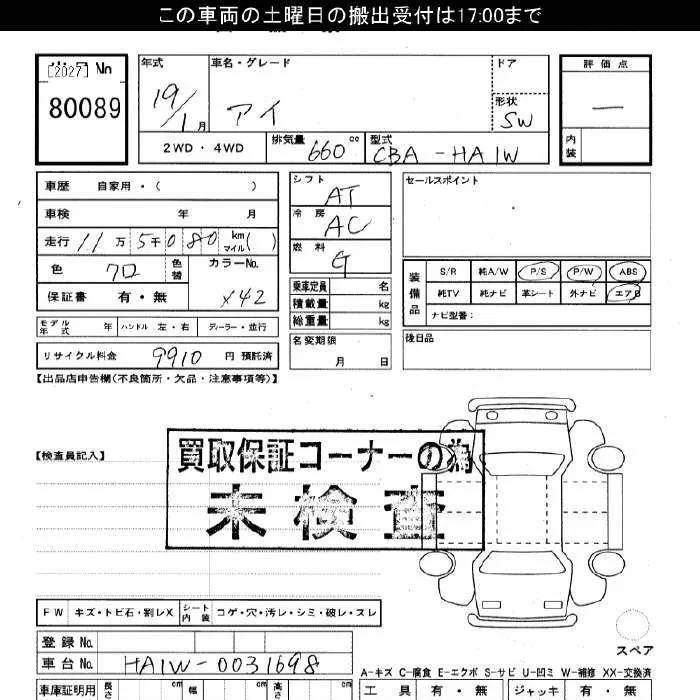 この車両の土曜日の搬出受付は17:00まで
[2027] No
80089
年式
19/1月
車名・グレード
アイ
ドア
形状
SW
評価点
—
内装
2WD・4WD
排気量 660 cc
型式 CBA-HA1W
車歴 自家用・( )
車検 年 月
走行 11万5千080 km マイル( )
色 クロ 色替
カラーNo. X42
保証書 有・無
モデル年式 年 ハンドル 左・右 ディーラー・並行
リサイクル料金 9910 円 預託済
シフト AT
冷房 AC
燃料 G
乗車定員 名
積載量 kg
総重量 kg
名変期限 月 日
セールスポイント
装備品
S/R 純A/W P/S P/W ABS
純TV 純ナビ 革シート 外ナビ エアB
ナビ型番:
後日品
【出品店申告欄(不良箇所・欠品・注意事項等)】
【検査員記入】
買取保証コーナーの為
未検査
FW キズ・トビ石・割レX シート内装 コゲ・穴・汚レ・シミ・破レ・スレ
登録No.
車台No. HA1W-0031698
車庫証明用 長さ cm 幅 cm 高さ cm
スペア
A-キズ C-腐食 E-エクボ S-サビ U-凹ミ W-補修 XX-交換済
工具 有・無 ジャッキ 有・無